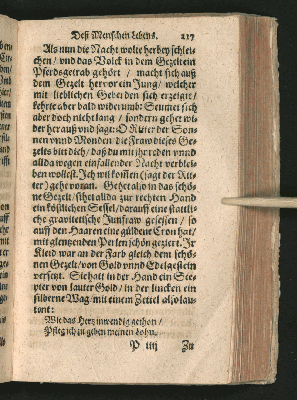 Deß Menschen Lebens. 217
Als nun die Nacht wolte herbey schlei-
chen / vnd das Volck in dem Gezelt ein
Pferdsgetrab gehört / macht sich auß
dem Gezelt hervor ein Jung / welcher
mit lieblichen Geberden sich erzeigt /
kehrte aber bald widerumb: Seumet sich
aber doch nicht lang / sondern gehet wi-
der herauß vnd sagt: O Ritter der Son-
nen vnnd Monden die Fraw dieses Ge-
zelts bitt dich / daß du mit ihr reden vnnd
allda wegen einfallender Nacht verblei-
ben wöllest. Ich wil kom̃en (sagt der Rit-
ter) geht voran. Gehet also in das schö-
ne Gezelt / sihet allda zur rechten Hand
ein köstlichen Sessel / darauff eine stattli-
che gravitetische Junfraw gesessen / so
auff den Haaren eine güldene Cron hat /
mit glentzenden Perlen schön geziert. Ir
Kleid war an der Farb gleich dem schö-
nen Gezelt / von Gold vnnd Edelgestein
versetzt. Sie hatt in der Hand ein Sce-
pter von lauter Gold / in der lincken ein
silberne Wag / mit einem Zettel also lau-
tent:
Wie das Hertz inwendig gethon /
Pfleg ich zu geben meinen Lohn.
P iiij Zu